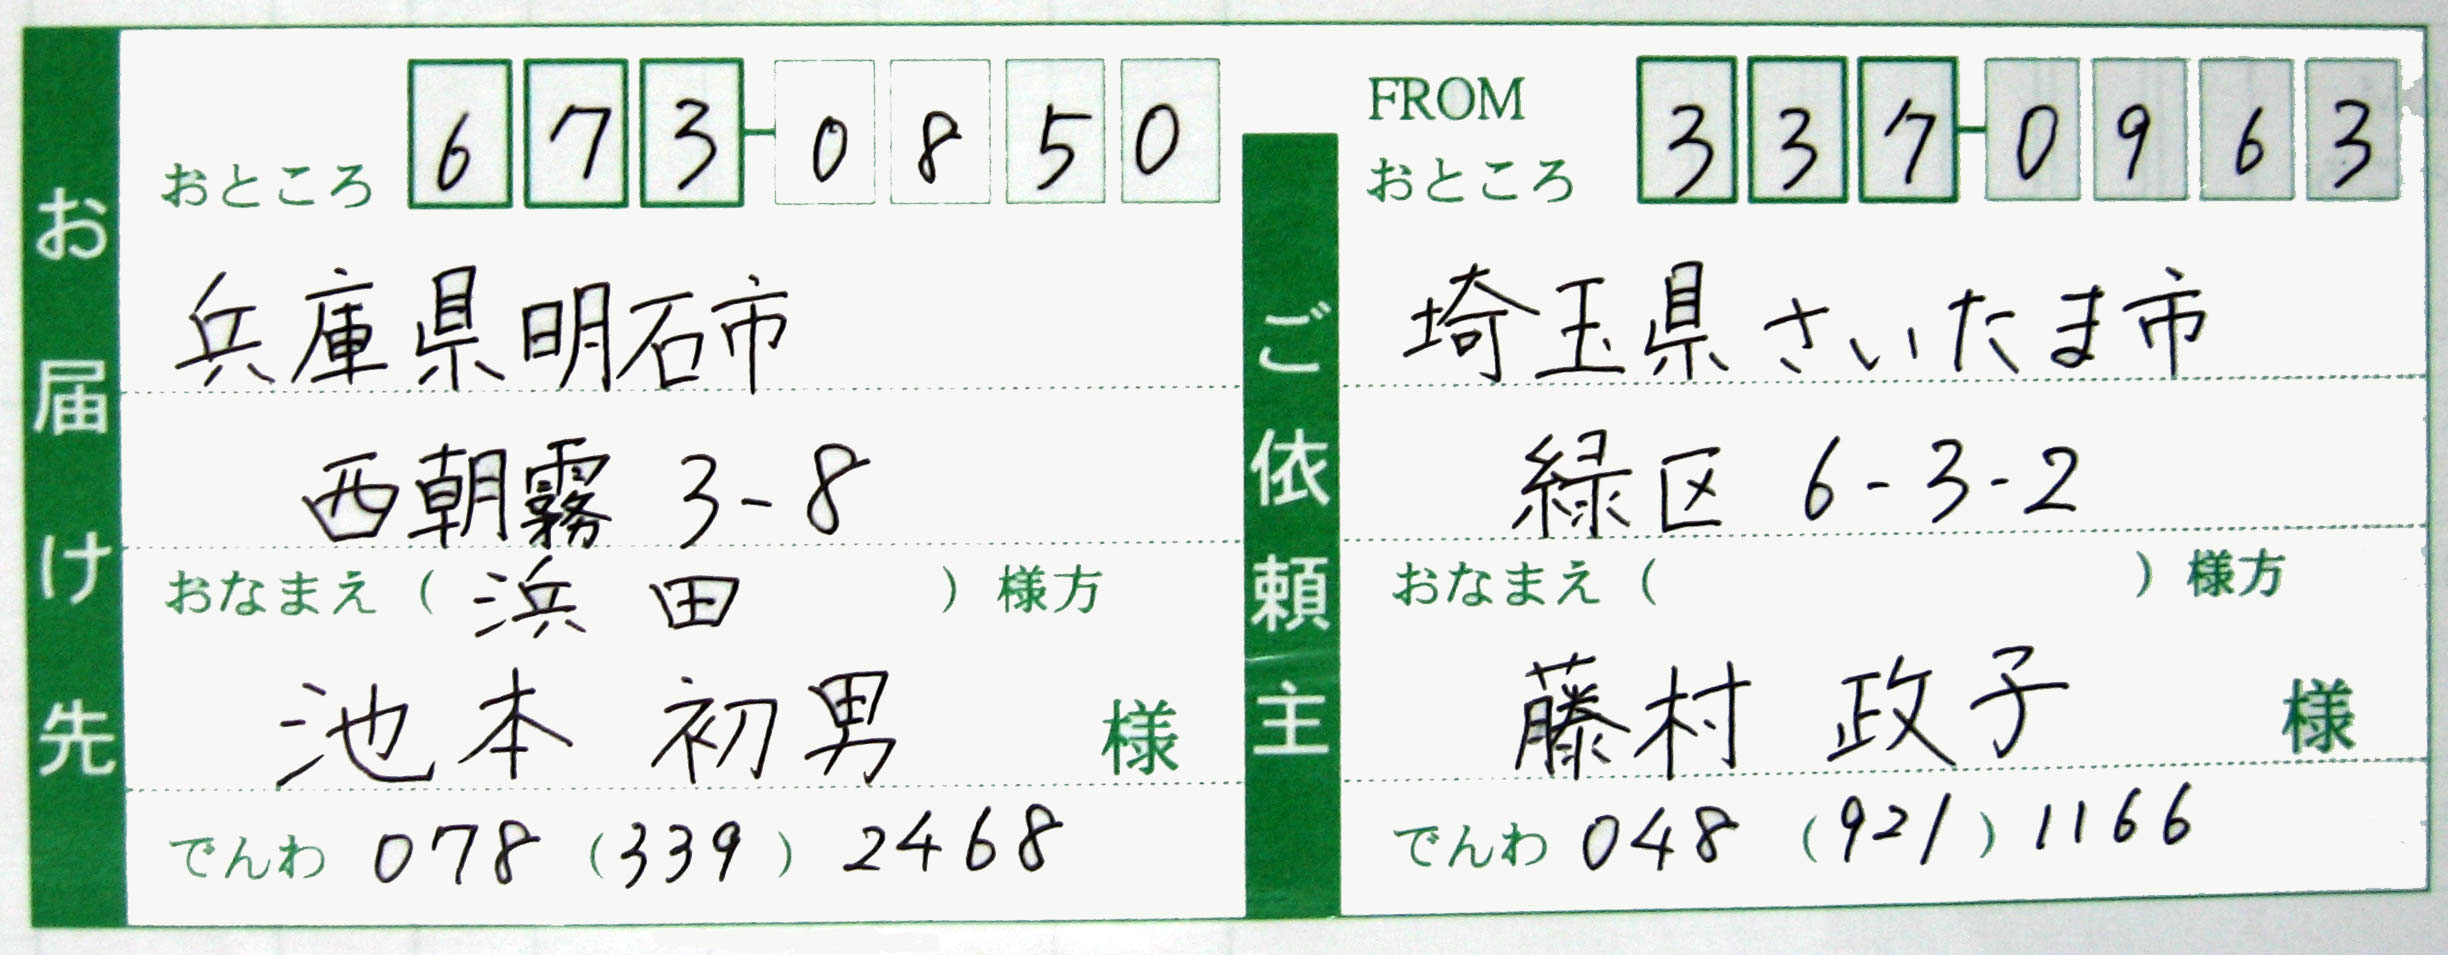 お届け先
おところ 673-0850
兵庫県明石市
西朝霧 3-8
おなまえ ( 浜田 ) 様方
池本 初男 様
でんわ 078 (339) 2468
ご依頼主
FROM
おところ 337-0963
埼玉県さいたま市
緑区 6-3-2
おなまえ ( ) 様方
藤村 政子 様
でんわ 048 (921) 1166